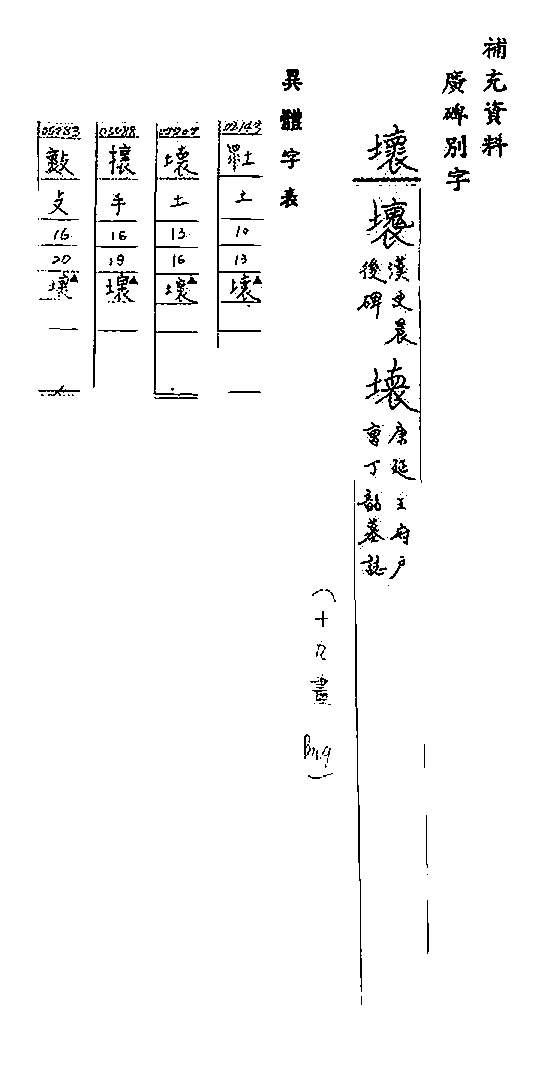 補充資料
廣碑別字
壞
壞 漢史晨
後碑
壊 唐延王府戶
曹丁韶墓誌
(十九畫
異體字表
土
10
13
壞▲
壊
土
13
16
壞▲
攘
手
16
19
壞▲
攴
16
20
壞▲